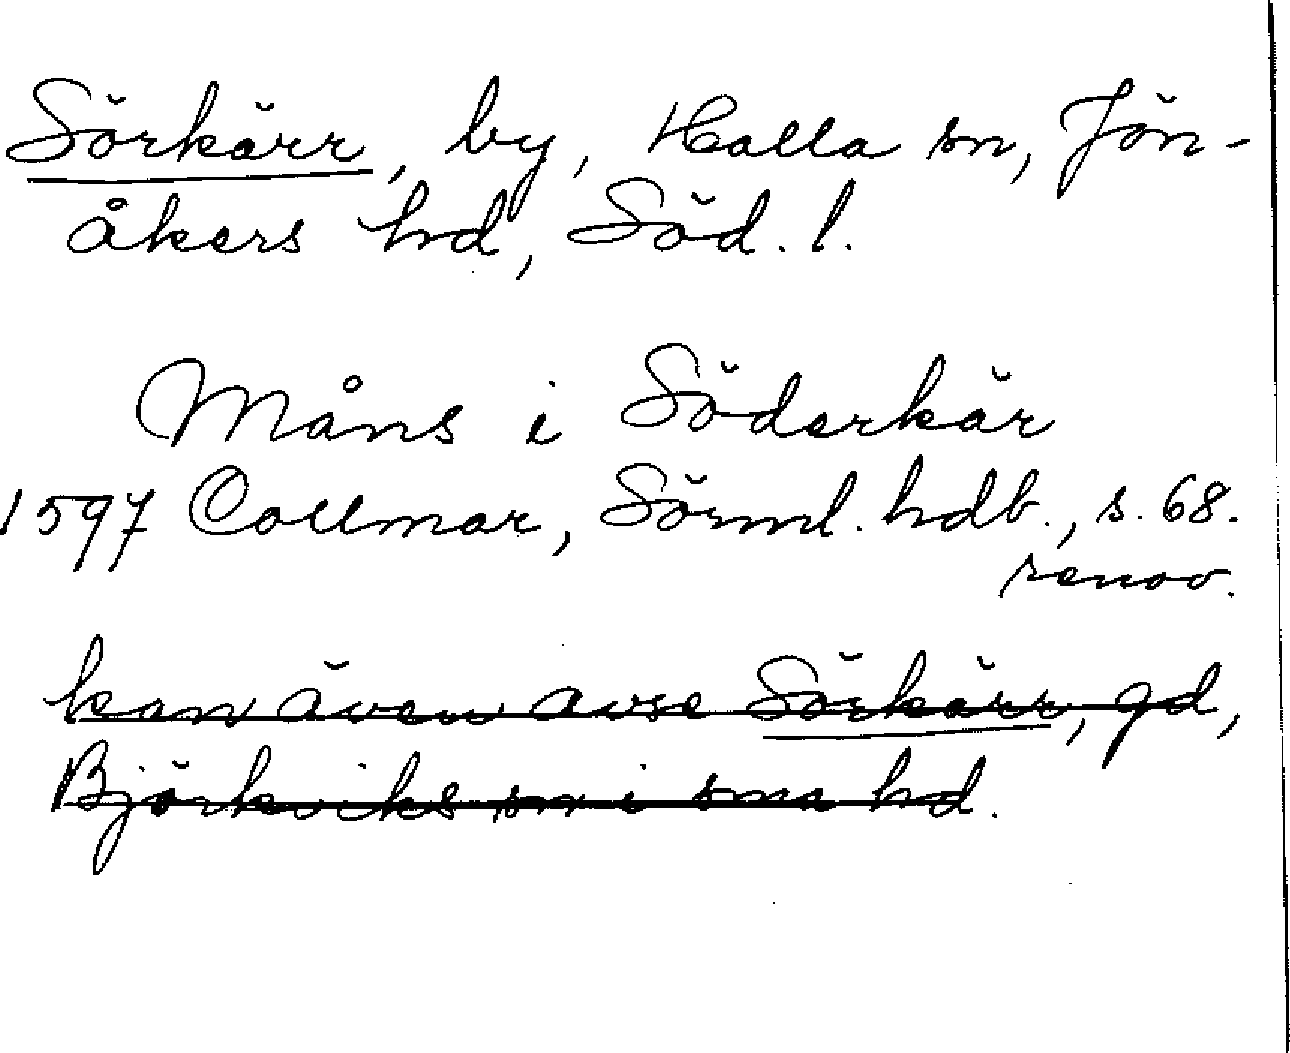 Sörkärr, by, Halla sn, Jön-
åkers hd, Söd. l.
Måns i Söderkär
1597 Collmar, Sörml. hdb., s. 68.
renov.
kan även avse Sörkärr, gd,
Björkviks sn i sma hd.